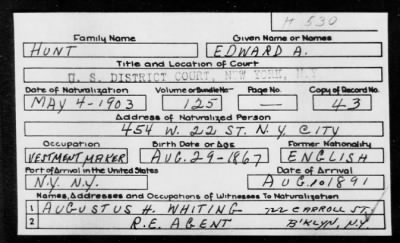 H 530
Family Name Given Name or Names
HUNT EDWARD A.
Title and Location of Court
U. S. DISTRICT COURT, NEW YORK, N.Y.
Date of Naturalization Volume or Bundle No. Page No. Copy of Record No.
MAY 4-1903 125 43
Address of Naturalized Person
454 W. 22 ST. N.Y. CITY
Occupation Birth Date or Age Former Nationality
VESTMENT MAKER AUG. 29-1867 ENGLISH
Port of Arrival in the United States Date of Arrival
N.Y. N.Y. AUG. 10 1891
Names, Addresses and Occupations of Witnesses To Naturalization
1 AUGUSTUS H. WHITING 722 CARROLL ST.
2 R.E. AGENT B'KLYN, N.Y.